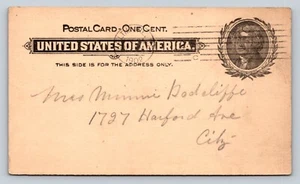 POSTAL CARD - ONE CENT.
UNITED STATES OF AMERICA.
THIS SIDE IS FOR THE ADDRESS ONLY.
Miss Minnie
1727 Harford Ave
City